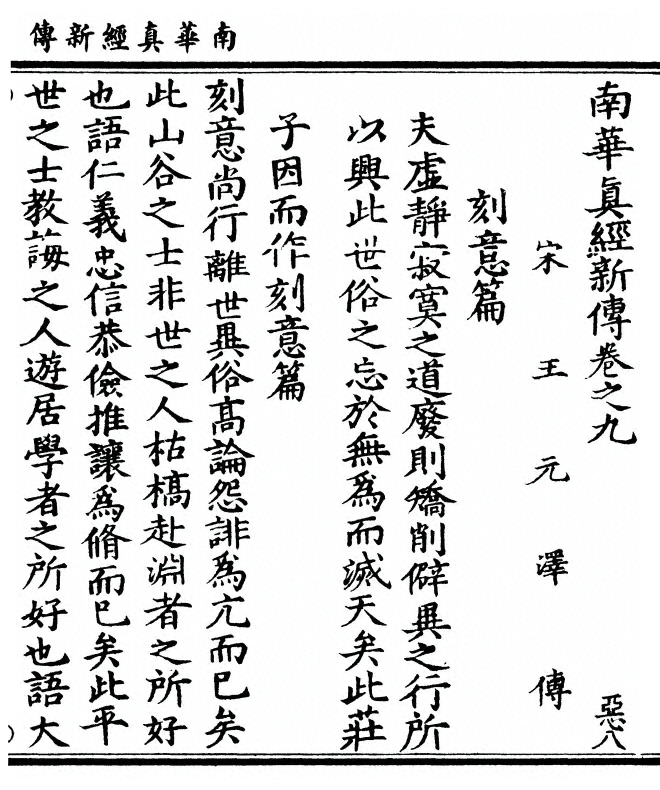 南華真經新傳
南華眞經新傳卷之九
宋王元澤傳 惡八
刻意篇
夫虛靜寂寞之道廢則矯削僻異之行所
以興此世俗之忘於無爲而滅天矣此莊
子因而作刻意篇
刻意尚行離世異俗高論怨誹爲亢而巳矣
此山谷之士非世之人枯槁赴淵者之所好
也語仁義忠信恭儉推讓爲脩而巳矣此平
世之士教誨之人遊居學者之所好也語大